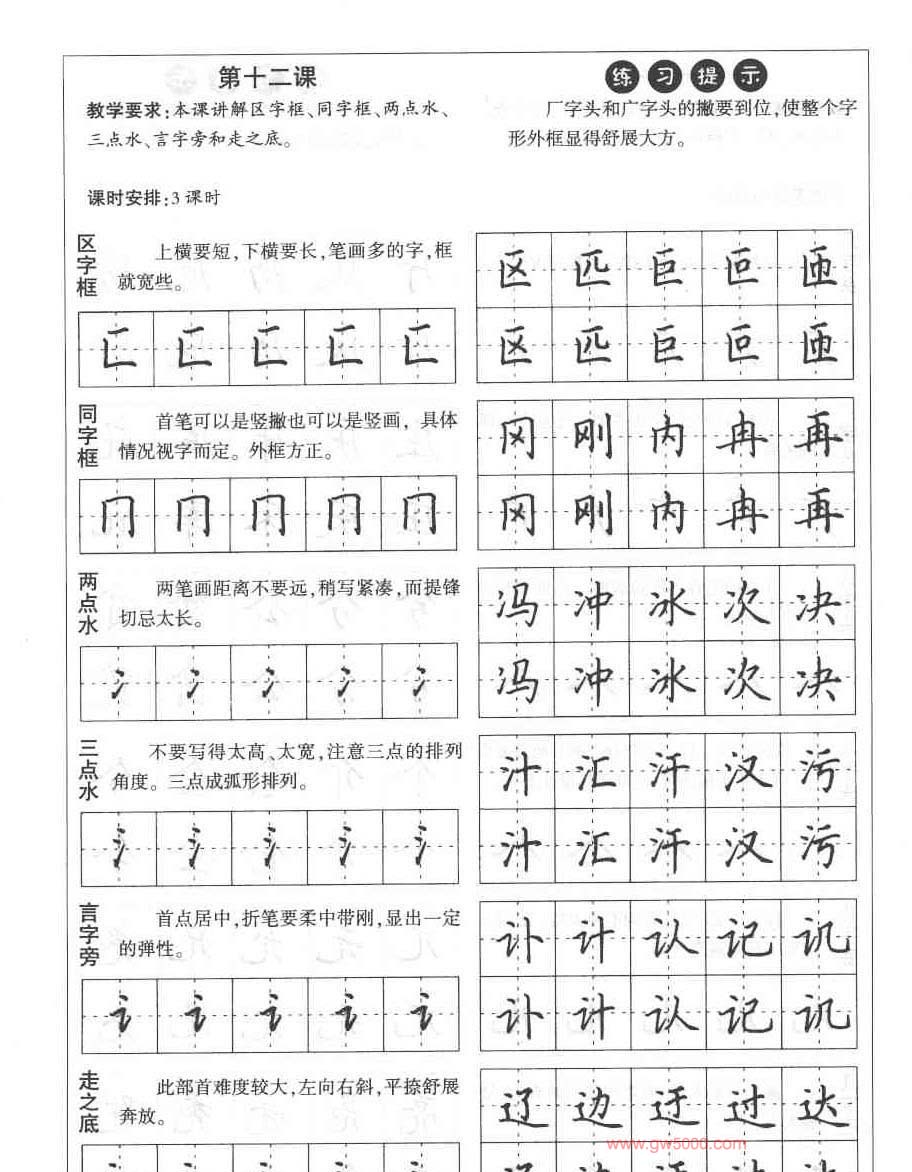 第十二课
教学要求:本课讲解区字框、同字框、两点水、
三点水、言字旁和走之底。
课时安排:3课时
练习提示
厂字头和广字头的撇要到位,使整个字
形外框显得舒展大方。
区字框
上横要短,下横要长,笔画多的字,框
就宽些。
匚 匚 匚 匚 匚
区 匹 巨 叵 匝
区 匹 巨 叵 匝
同字框
首笔可以是竖撇也可以是竖画,具体
情况视字而定。外框方正。
冂 冂 冂 冂 冂
冈 刚 内 冉 再
冈 刚 内 冉 再
两点水
两笔画距离不要远,稍写紧凑,而提锋
切忌太长。
冫 冫 冫 冫 冫
冯 冲 冰 次 决
冯 冲 冰 次 决
三点水
不要写得太高、太宽,注意三点的排列
角度。三点成弧形排列。
氵 氵 氵 氵 氵
汁 汇 汗 汉 污
汁 汇 汗 汉 污
言字旁
首点居中,折笔要柔中带刚,显出一定
的弹性。
讠 讠 讠 讠 讠
讣 计 认 记 讥
讣 计 认 记 讥
走之底
此部首难度较大,左向右斜,平捺舒展
奔放。
辽 边 迂 过 达
www.gw5000.com